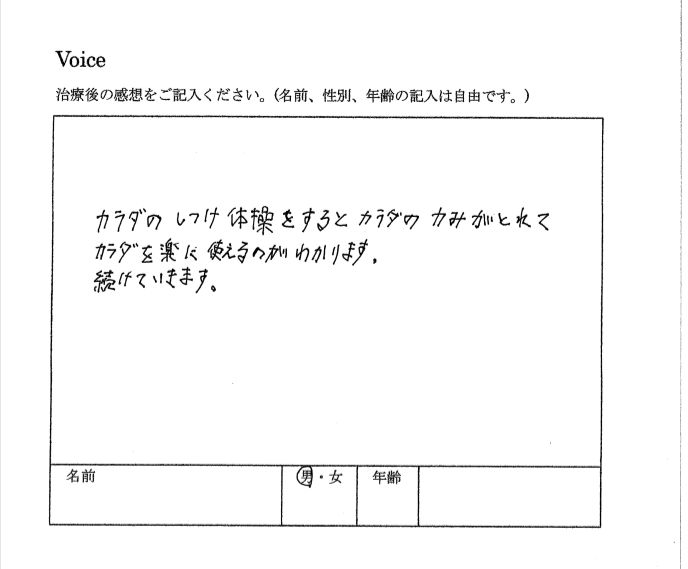 Voice
治療後の感想をご記入ください。(名前、性別、年齢の記入は自由です。)
カラダの しつけ 体操をすると カラダの 力みがとれて
カラダを楽に 使えるのがわかります。
続けていきます。
名前 男・女 年齢